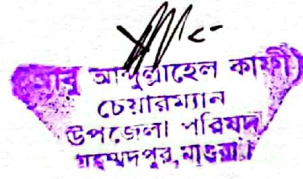 আবু আব্দুল্লাহেল কাফী
চেয়ারম্যান
উপজেলা পরিষদ
মহম্মদপুর, মাগুরা।